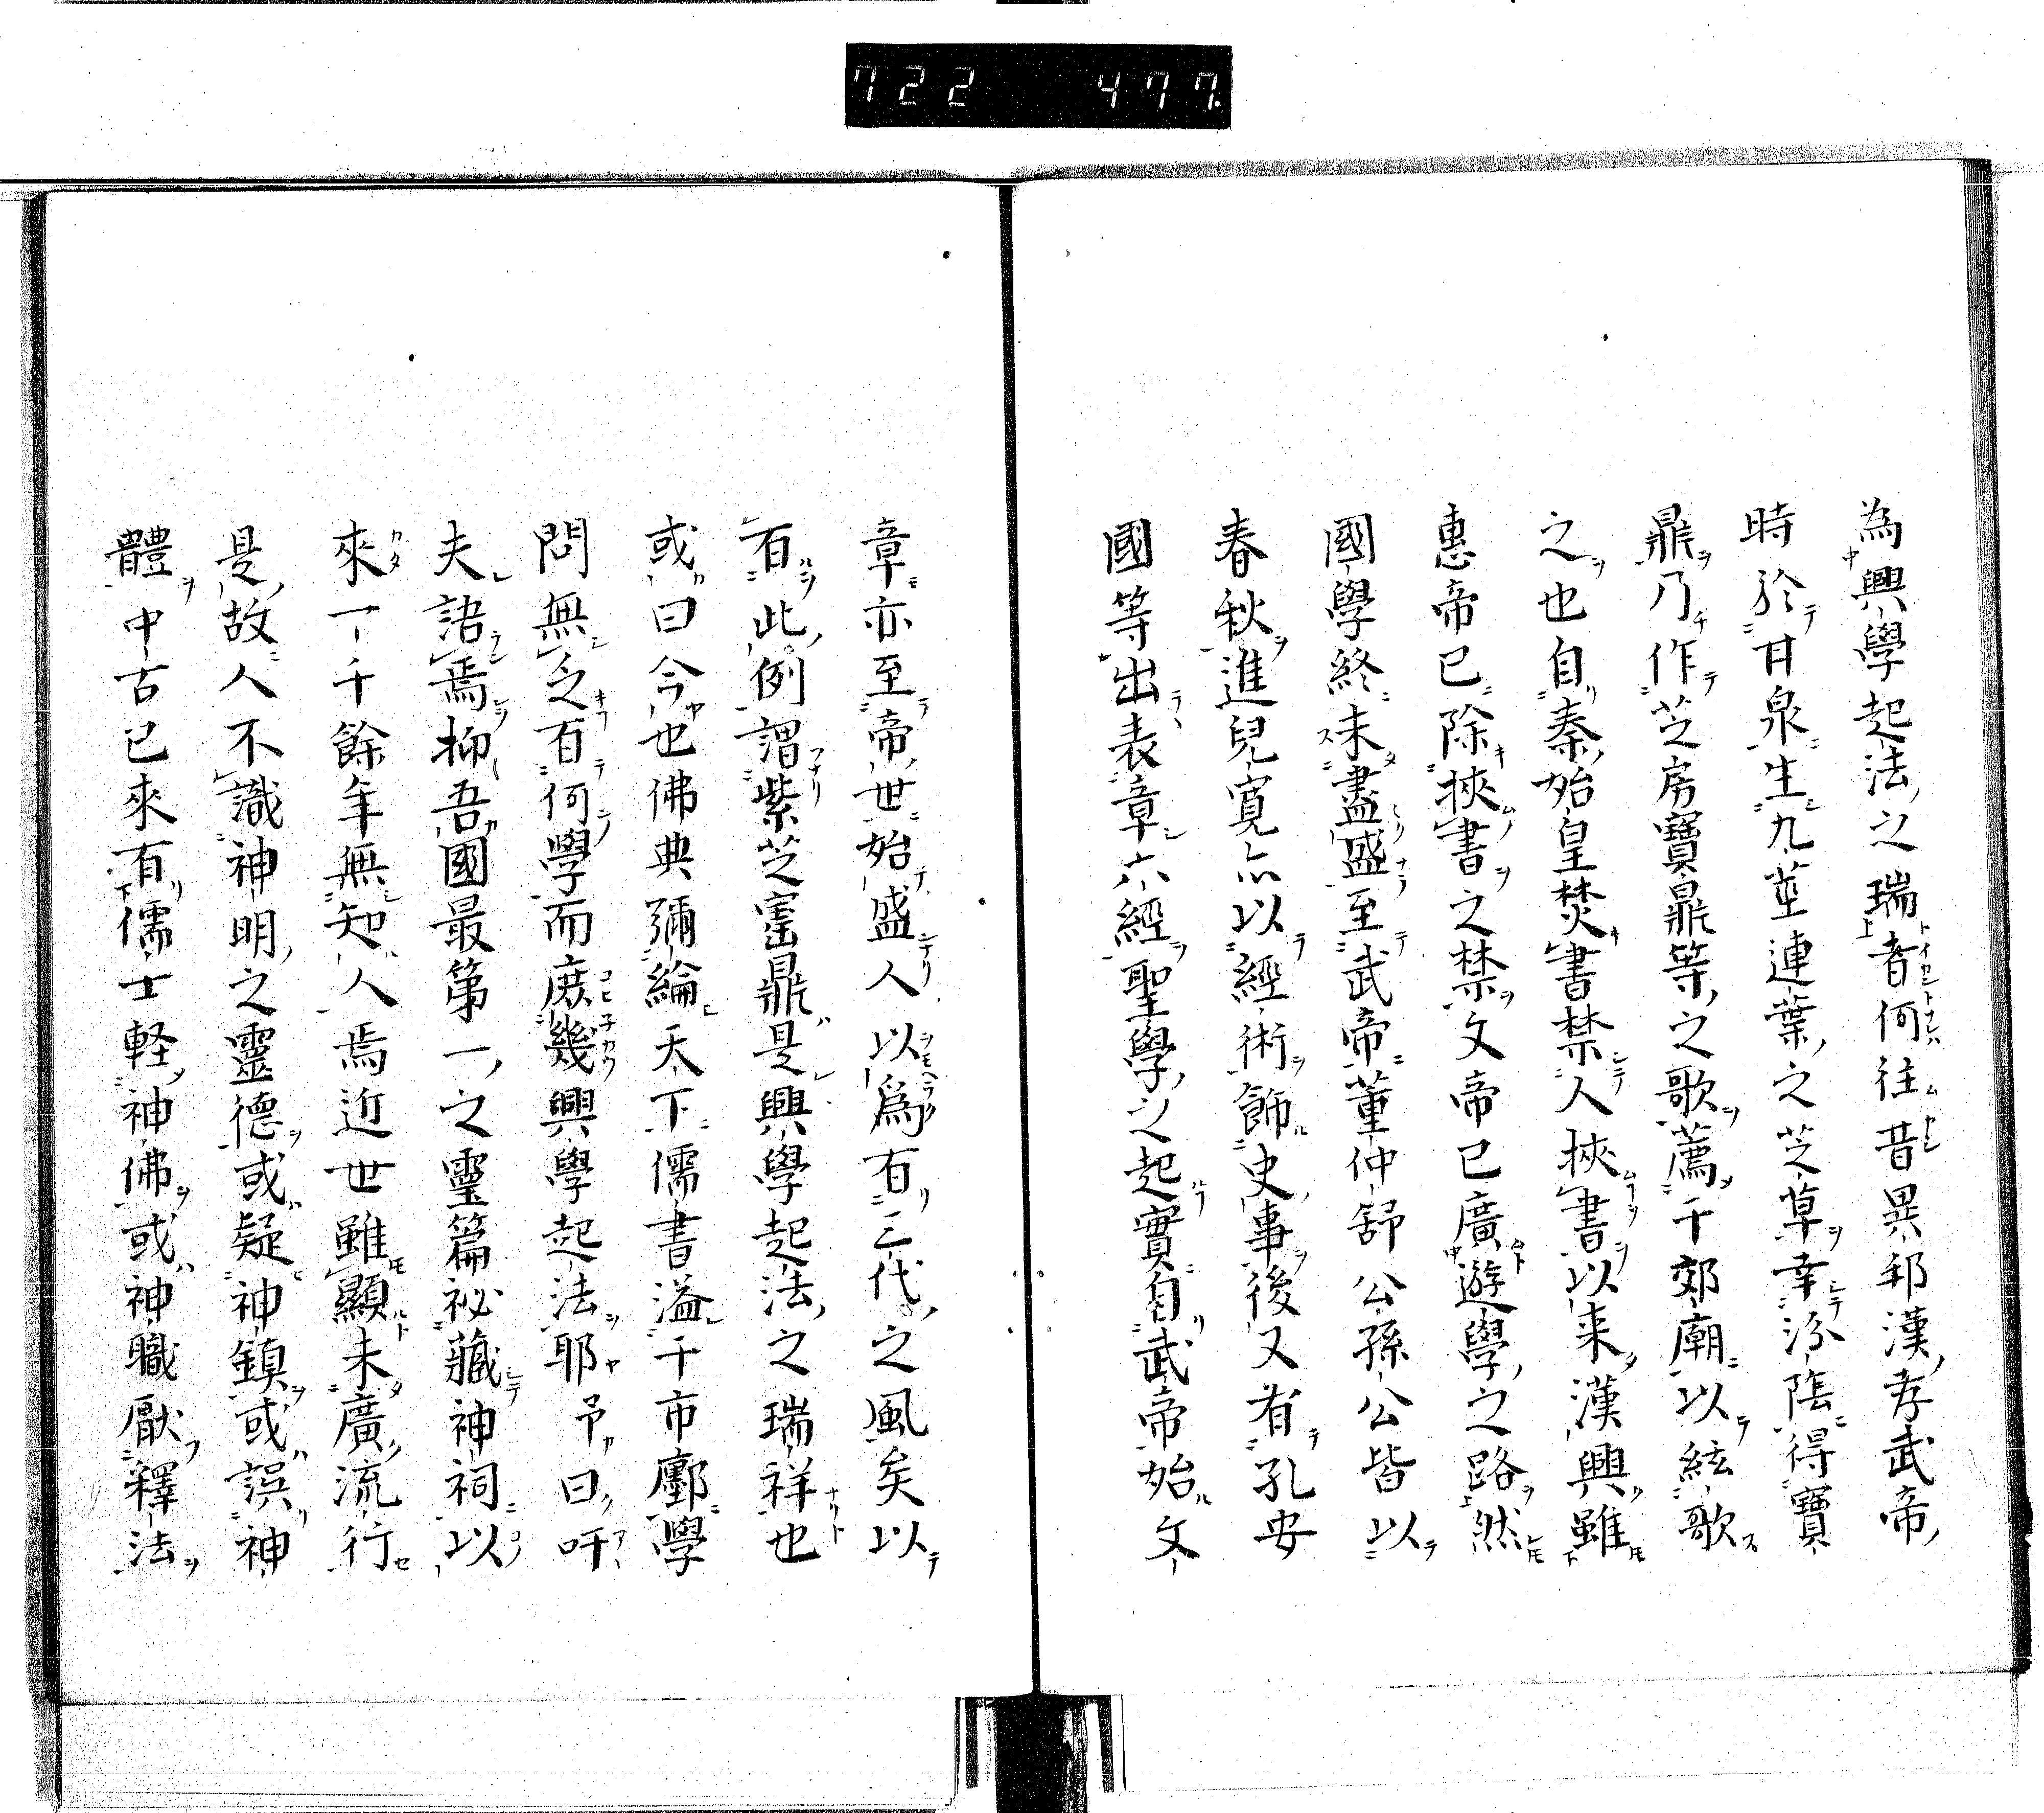 722 477.
為興學起法之瑞者何往昔異邦漢孝武帝
時於甘泉生九莖連葉之芝草幸汾陰得寶
鼎乃作芝房寶鼎等之歌薦于郊廟以絃歌
之也自秦始皇焚書禁人挾書以来漢興雖
惠帝已除挾書之禁文帝已廣遊學之路然
國學終未盡盛至武帝董仲舒公孫公皆以
春秋進兒寛亦以經術飾史事後又有孔安
國等出表章六經聖學之起實自武帝始文
章亦至帝世始盛人以爲有三代之風矣以
有此例謂紫芝寳鼎是興學起法之瑞祥也
或曰今也佛典彌綸天下儒書溢于市鄽學
問無乏有何學而庶幾興學起法耶予曰吁
夫語焉抑吾國最第一之靈篇祕藏神祠以
來一千餘年無知人焉近世雖顯未廣流行
是故人不識神明之靈德或疑神鎮或誤神
體中古已來有儒士軽神佛或神職厭釋法